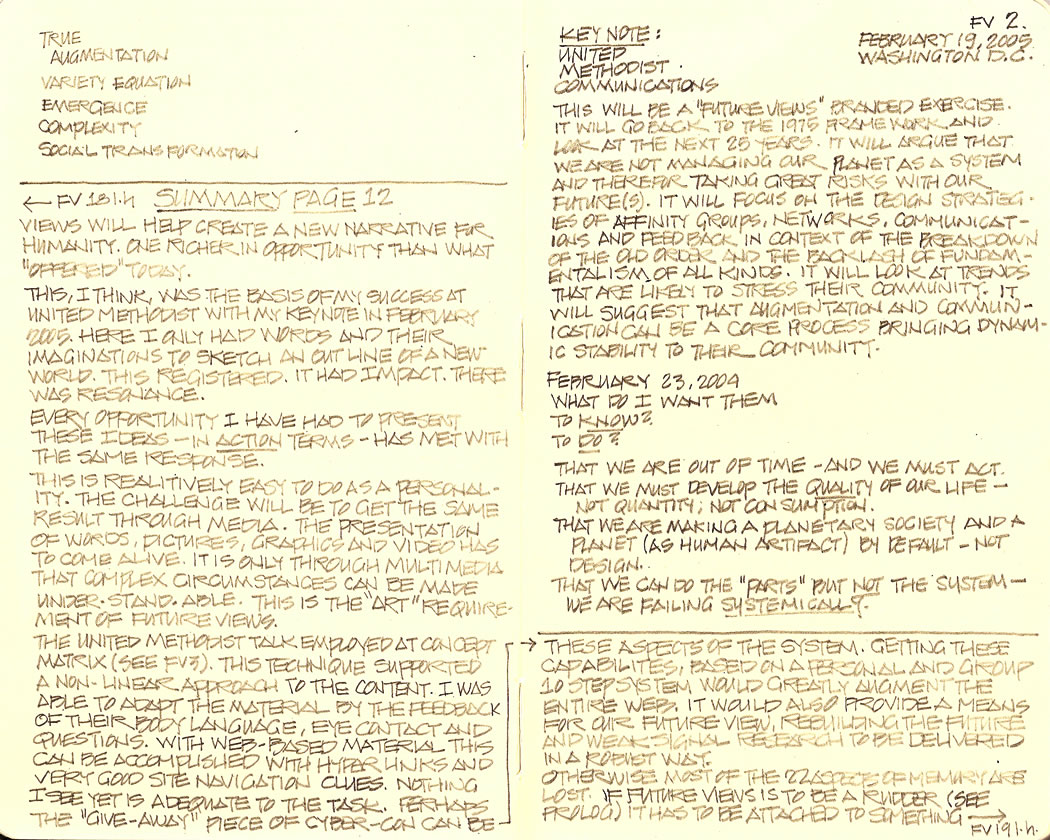 TRUE
AUGMENTATION
VARIETY EQUATION
EMERGENCE
COMPLEXITY
SOCIAL TRANSFORMATION
← FV 181.h SUMMARY PAGE 12
VIEWS WILL HELP CREATE A NEW NARRATIVE FOR
HUMANITY. ONE RICHER IN OPPORTUNITY THAN WHAT
"OFFERED" TODAY.
THIS, I THINK, WAS THE BASIS OF MY SUCCESS AT
UNITED METHODIST WITH MY KEYNOTE IN FEBRUARY
2005. HERE I ONLY HAD WORDS AND THEIR
IMAGINATIONS TO SKETCH AN OUT LINE OF A NEW
WORLD. THIS REGISTERED. IT HAD IMPACT. THERE
WAS RESONANCE.
EVERY OPPORTUNITY I HAVE HAD TO PRESENT
THESE IDEAS - IN ACTION TERMS - HAS MET WITH
THE SAME RESPONSE.
THIS IS REALITIVELY EASY TO DO AS A PERSONAL-
ITY. THE CHALLENGE WILL BE TO GET THE SAME
RESULT THROUGH MEDIA. THE PRESENTATION
OF WORDS, PICTURES, GRAPHICS AND VIDEO HAS
TO COME ALIVE. IT IS ONLY THROUGH MULTIMEDIA
THAT COMPLEX CIRCUMSTANCES CAN BE MADE
UNDER·STAND·ABLE. THIS IS THE "ART" REQUIRE-
MENT OF FUTURE VIEWS.
THE UNITED METHODIST TALK EMPLOYED AT CONCEPT
MATRIX (SEE FV3). THIS TECHNIQUE SUPPORTED
A NON-LINEAR APPROACH TO THE CONTENT. I WAS
ABLE TO ADAPT THE MATERIAL BY THE FEEDBACK
OF THEIR BODY LANGUAGE, EYE CONTACT AND
QUESTIONS. WITH WEB-BASED MATERIAL THIS
CAN BE ACCOMPLISHED WITH HYPER LINKS AND
VERY GOOD SITE NAVIGATION CLUES. NOTHING
I SEE YET IS ADEQUATE TO THE TASK. PERHAPS
THE "GIVE-AWAY" PIECE OF CYBER-CON CAN BE
FV 2.
FEBRUARY 19, 2005
WASHINGTON D.C.
KEY NOTE:
UNITED
METHODIST
COMMUNICATIONS
THIS WILL BE A "FUTURE VIEWS" BRANDED EXERCISE.
IT WILL GO BACK TO THE 1975 FRAMEWORK AND
LOOK AT THE NEXT 25 YEARS. IT WILL ARGUE THAT
WE ARE NOT MANAGING OUR PLANET AS A SYSTEM
AND THEREFOR TAKING GREAT RISKS WITH OUR
FUTURE(S). IT WILL FOCUS ON THE DESIGN STRATEG-
IES OF AFFINITY GROUPS, NETWORKS, COMMUNICAT-
IONS AND FEEDBACK IN CONTEXT OF THE BREAKDOWN
OF THE OLD ORDER AND THE BACKLASH OF FUNDAM-
ENTALISM OF ALL KINDS. IT WILL LOOK AT TRENDS
THAT ARE LIKELY TO STRESS THEIR COMMUNITY. IT
WILL SUGGEST THAT AUGMENTATION AND COMMUN-
ICATION CAN BE A CORE PROCESS BRINGING DYNAM-
IC STABILITY TO THEIR COMMUNITY.
FEBRUARY 23, 2004
WHAT DO I WANT THEM
TO KNOW?
TO DO?
THAT WE ARE OUT OF TIME - AND WE MUST ACT.
THAT WE MUST DEVELOP THE QUALITY OF OUR LIFE -
NOT QUANTITY; NOT CONSUMPTION.
THAT WE ARE MAKING A PLANETARY SOCIETY AND A
PLANET (AS HUMAN ARTIFACT) BY DEFAULT - NOT
DESIGN.
THAT WE CAN DO THE "PARTS" BUT NOT THE SYSTEM -
WE ARE FAILING SYSTEMICALLY.
→ THESE ASPECTS OF THE SYSTEM. GETTING THESE
CAPABILITES, BASED ON A PERSONAL AND GROUP
10 STEP SYSTEM WOULD GREATLY AUGMENT THE
ENTIRE WEB. IT WOULD ALSO PROVIDE A MEANS
FOR OUR FUTURE VIEW, REBUILDING THE FUTURE
AND WEAK SIGNAL RESEARCH TO BE DELIVERED
IN A ROBUST WAY.
OTHERWISE MOST OF THE 22 ASPECTS OF MEMORY ARE
LOST. IF FUTURE VIEWS IS TO BE A RUDDER (SEE
PROLOG) IT HAS TO BE ATTACHED TO SOMETHING →
FV 191.h.